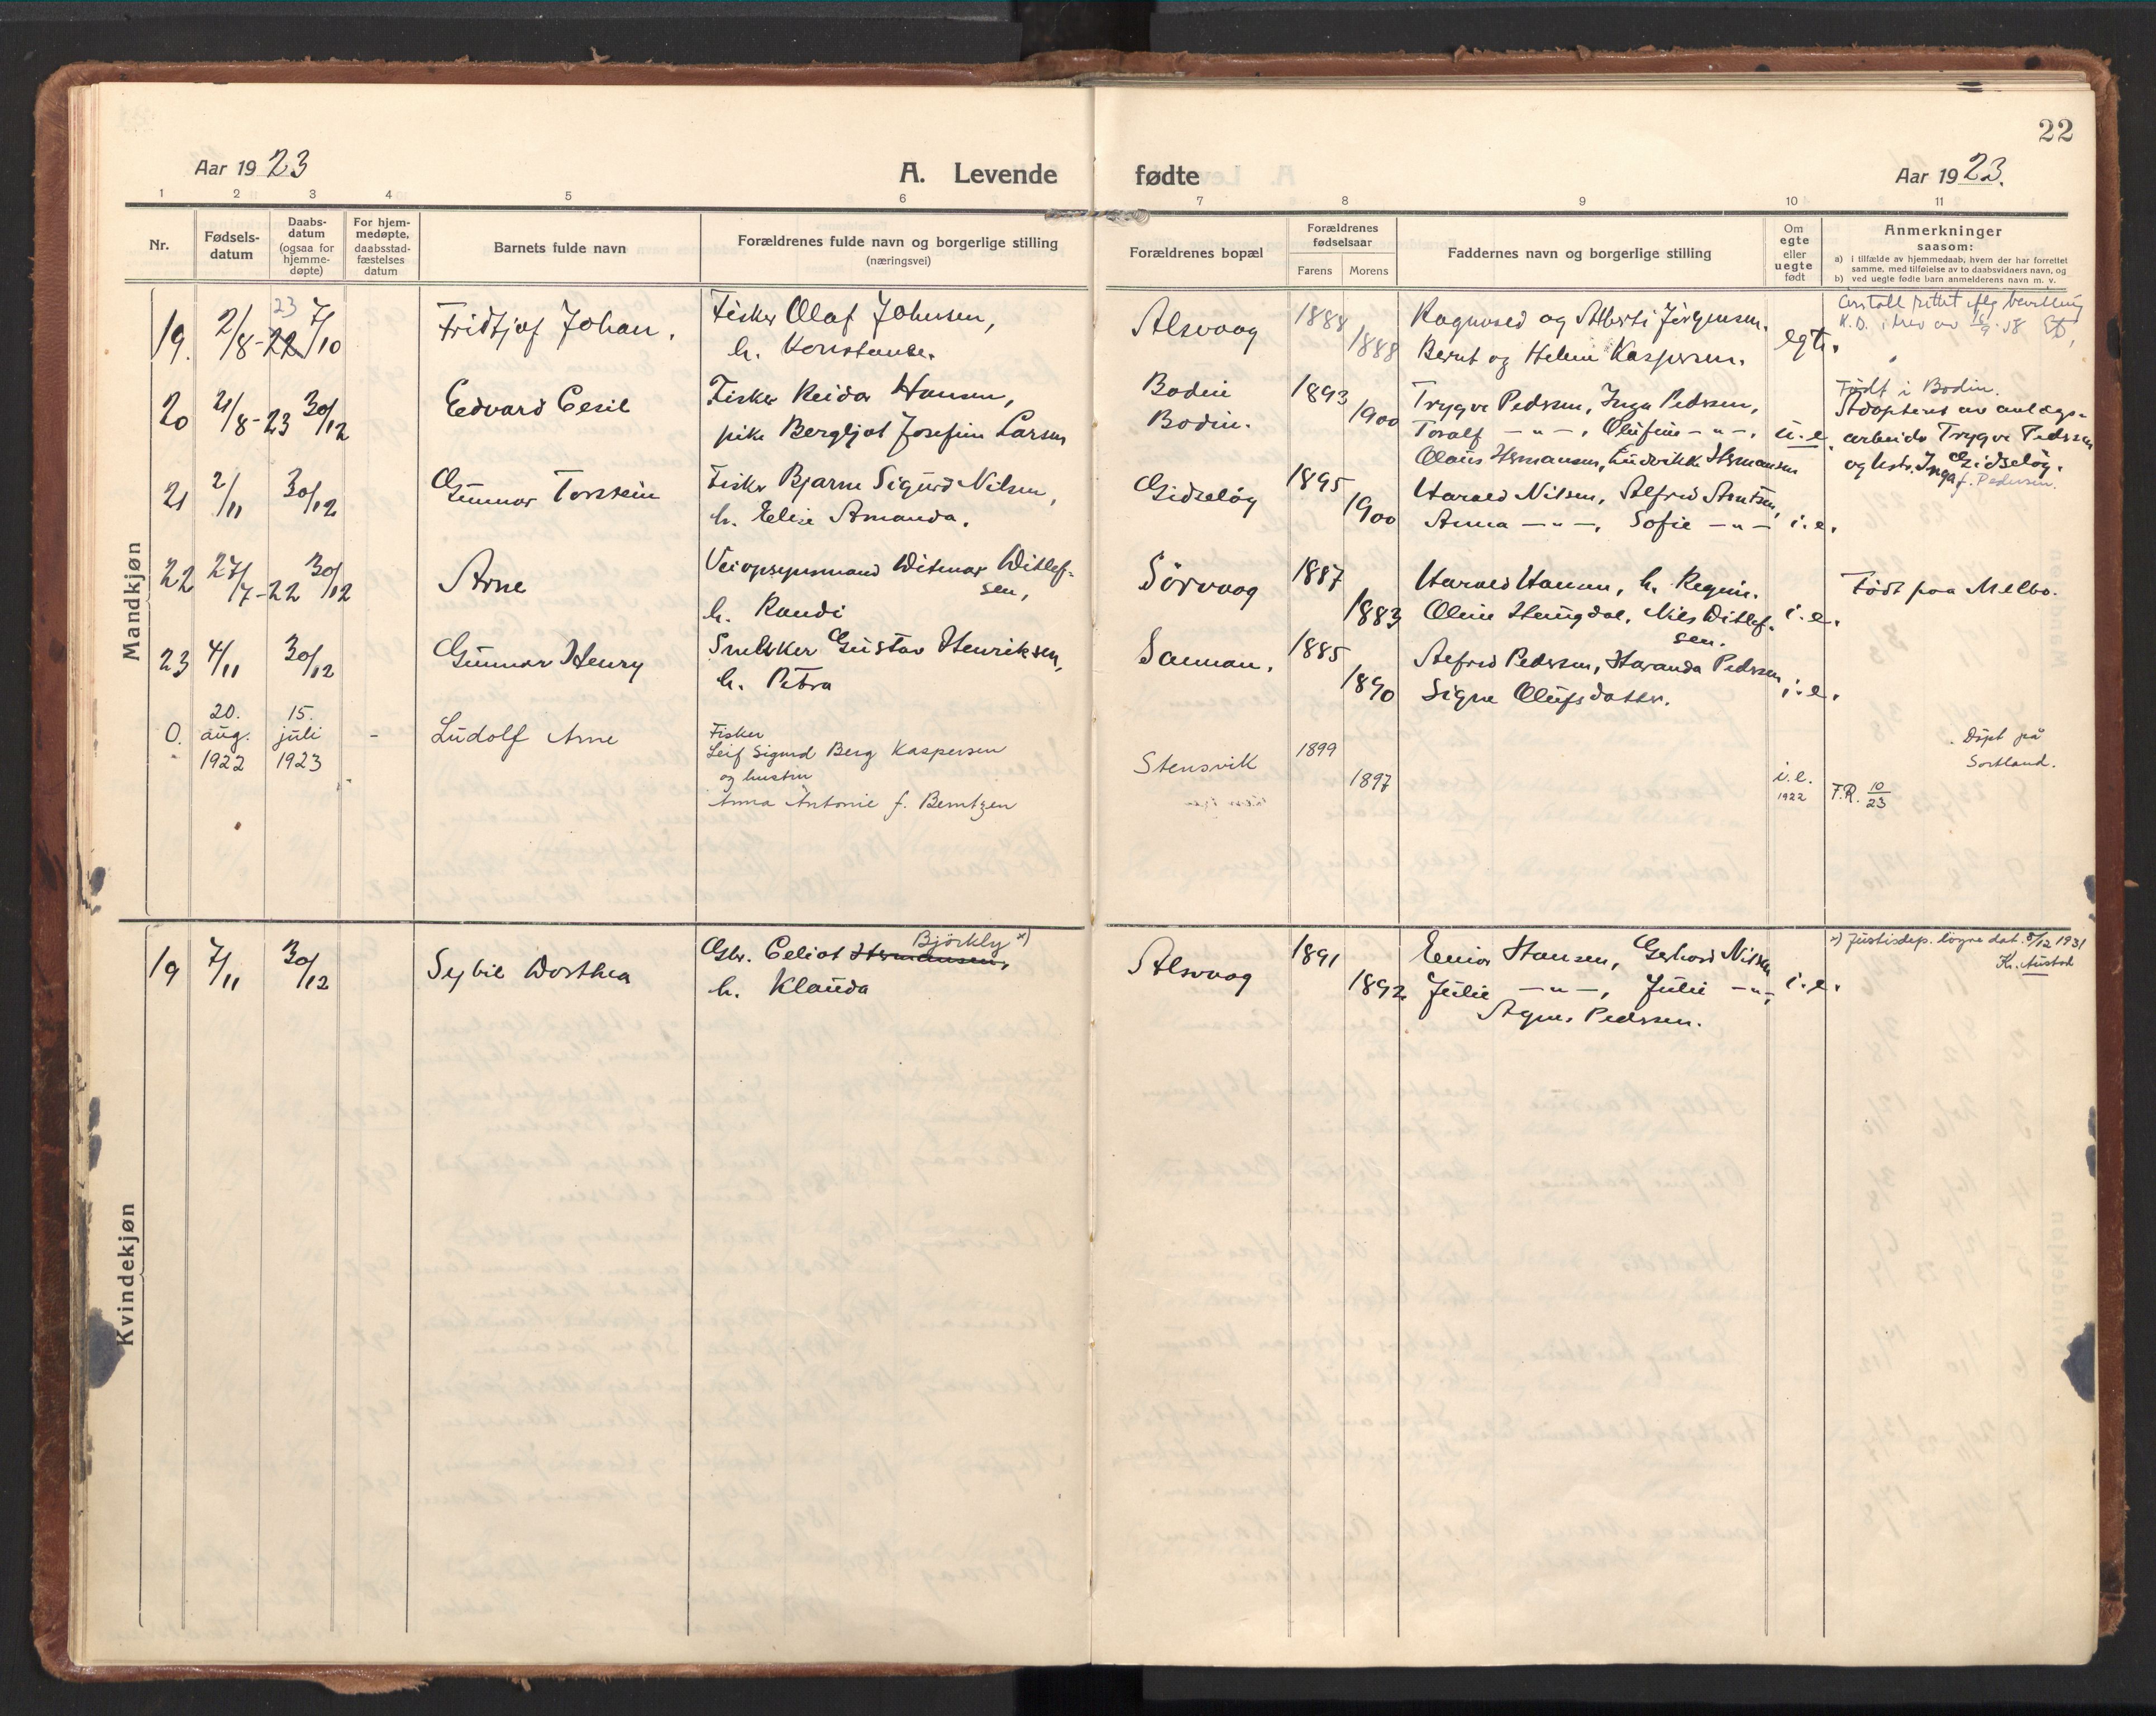 22
Aar 1923
A. Levende
fødte
Aar 1923.
1 2 3 4 5 6 7 8 9 10 11
Nr.
Fødsels-
datum
Daabs-
datum
(ogsaa for
hjemme-
døpte)
For hjem-
medøpte,
daabsstad-
fæstelses
datum
Barnets fulde navn
Forældrenes fulde navn og borgerlige stilling
(næringsvei)
Forældrenes bopæl
Forældrenes
fødselsaar
Farens
Morens
Faddernes navn og borgerlige stilling
Om
egte
eller
uegte
født
Anmerkninger
saasom:
a) i tilfælde av hjemmedaab, hvem der har forrettet
samme, med tilføielse av to daabsvidners navn, og
b) ved uegte fødte barn anmelderens navn m. v.
Mandkjøn
19. 2/8-22 23 7/10
Fridtjof Johan.
Fisker Olaf Johnsen,
h. Konstanse.
Alsvaag
1888
1888
Ragnvald og Alberti Jørgensen.
Bernt og Helene Kaspersen.
egte.
Årstall rettet iflg bevilling
K.D. i brev av 16/9-58
20 21/8-23 30/12
Edvard Cesil
Fisker Reidar Hansen,
pike Bergljot Josefine Larsen
Bodin
Bodin.
1893
1900
Trygve Pedersen, Inga Pedersen,
Toralf —"—, Olufine —"—,
Olaus Hermansen, Ludvikke Hermansen
u.e.
Født i Bodin.
Adopteret av anlægs-
arbeider Trygve Pedersen
og hstr. Inga f. Pedersen. Gidsløg.
21 2/11 30/12
Gunnar Torstein
Fisker Bjarne Sigurd Nilsen,
h. Elise Amanda.
Gidsløg
1895
1900
Harald Nilsen, Alfred Arntsen,
Anna —"—, Sofie —"—
i.e.
22 27/7-22 30/12
Arne
Veiopsynsmand Ditmar Ditlef-
sen,
h. Randi
Sørvaag
1887
1883
Harald Hansen, h. Regine.
Oline Haugdal, Nils Ditlef-
sen.
i.e.
Født paa Melbo.
23 4/11 30/12
Gunnar Henry
Snekker Gustav Henriksen,
h. Petra
Sannan.
1885
1890
Alfred Pedersen, Haranda Pedersen
Signe Olufsdatter.
i.e.
0. 20.
aug.
1922
15.
juli
1923
-
Ludolf Arne
Fisker
Leif Sigurd Berg Kaspersen
og hustru
Anna Antonie f. Berntzen
Stensvik
1899
1897
i.e.
1922
Døpt på
Sortland.
F.R. 10/23
Kvindekjøn
19 7/11 30/12
Sybil Dorthea
Gbr. Eeliot Hermansen, Björkly *)
h. Klauda
Alsvaag
1891
1892
Einar Hansen, Gerhard Nilsen
Julie —"—, Julie —"—,
Agnes Pedersen.
i.e.
*) Justisdep. lõyve dat. 8/12 1931
Kr. Austad